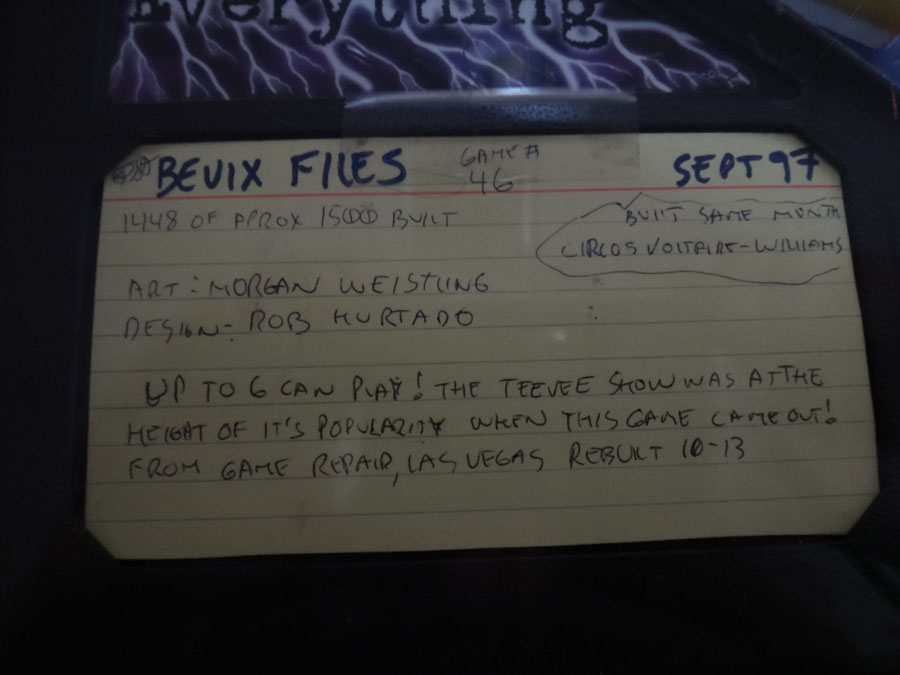 Everything
BEVIX FILES
GAME #
46
SEPT 97
1448 OF APROX 1500 BUILT
BUILT SAME MONTH
CIRCOS VOLTAIRE-WILLIAMS
ART: MORGAN WEISTLING
DESIGN- ROB HURTADO
UP TO 6 CAN PLAY! THE TEEVEE SHOW WAS AT THE
HEIGHT OF IT'S POPULARITY WHEN THIS GAME CAME OUT!
FROM GAME REPAIR, LAS VEGAS REBUILT 10-13